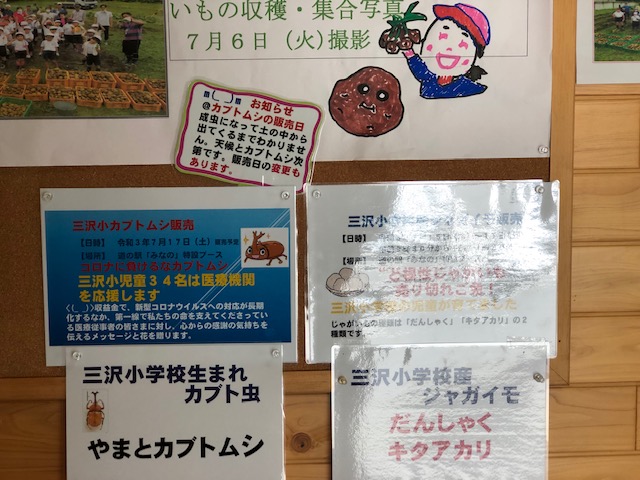 いもの収穫・集合写真
7月6日（火）撮影
m(_ _)m お知らせ
@カブトムシの販売日
成虫になって土の中から
出てくるまでわかりませ
ん。天候とカブトムシ次
第です。販売日の変更も
あります。
三沢小カブトムシ販売
【日時】 令和3年7月17日（土）販売予定
【場所】 道の駅「みなの」特設ブース
コロナに負けるなカブトムシ
三沢小児童34名は医療機関
を応援します
<(_ _)>収益金で、新型コロナウイルスへの対応が長期
化するなか、第一線で私たちの命を支えてくださってい
る医療従事者の皆さまに対し、心からの感謝の気持ちを
伝えるメッセージと花を贈ります。
三沢小学校
販売
【日時】
【場所】
ど根性じゃがいも
売り切れご免！
三沢小学校の児童が育てました
じゃがいもの種類は「だんしゃく」「キタアカリ」の2
種類です。
三沢小学校生まれ
カブト虫
やまとカブトムシ
三沢小学校産
ジャガイモ
だんしゃく
キタアカリ